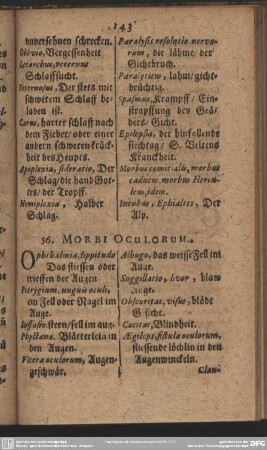 143
vnversehnen schrecken.
Oblivio, Vergessenheit
Letarchus, veternus
Schlaffsucht.
Veternosus, Der stets mit
schwerem Schlaff be-
laden ist.
Carus, harter schlaff nach
dem Fieber/ oder einer
andern schweren kranck-
heit des Heuptes.
Apoplexia, sideratio, Der
Schlag/die hand Got-
tes/ der Tropff.
Hemiplexia, Halber
Schlag.
Paralysis resolutio nervo-
rum, die lähme/ der
Gichtbruch.
Paralyticus, lahm/gicht-
brüchtig.
Spasmus, Krampff/ Ein-
strapffung des Geä-
ders/ Gicht.
Epilepsia, der hinfallende
siechtag/ S. Veltens
Kranckheit.
Morbus comitialis, morbus
caducus, morbus Hercu-
leus, idem.
Incubus, Ephialtes, Der
Alp.
56. MORBI OCULORUM.
Ophthalmia, lippitudo
Das fliessen oder
trieffen der Augen
Pterygium, unguis oculi,
ein Fell oder Nagel im
Auge.
Suffusio, stern/fell im aug.
Phyctæna, Blätterlein in
den Augen.
Vlcera oculorum, Augen-
geschwär.
Albugo, das weisse Fell im
Auge.
Suggillatio, livor, blaw
Auge.
Obscuritas, visus, blöde
Gesicht.
Cæcitas, Blindheit.
Ægilops, fistula oculorum,
fliessende löchlin in den
Augenwinckeln.
Clau-